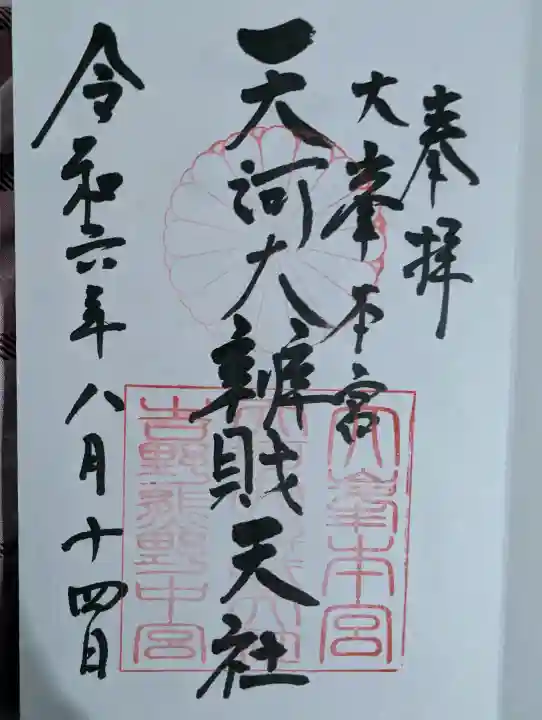 奉拝
大峯本宮
天河大辨財天社
令和六年八月十四日
大峯本宮
吉野熊野中宮